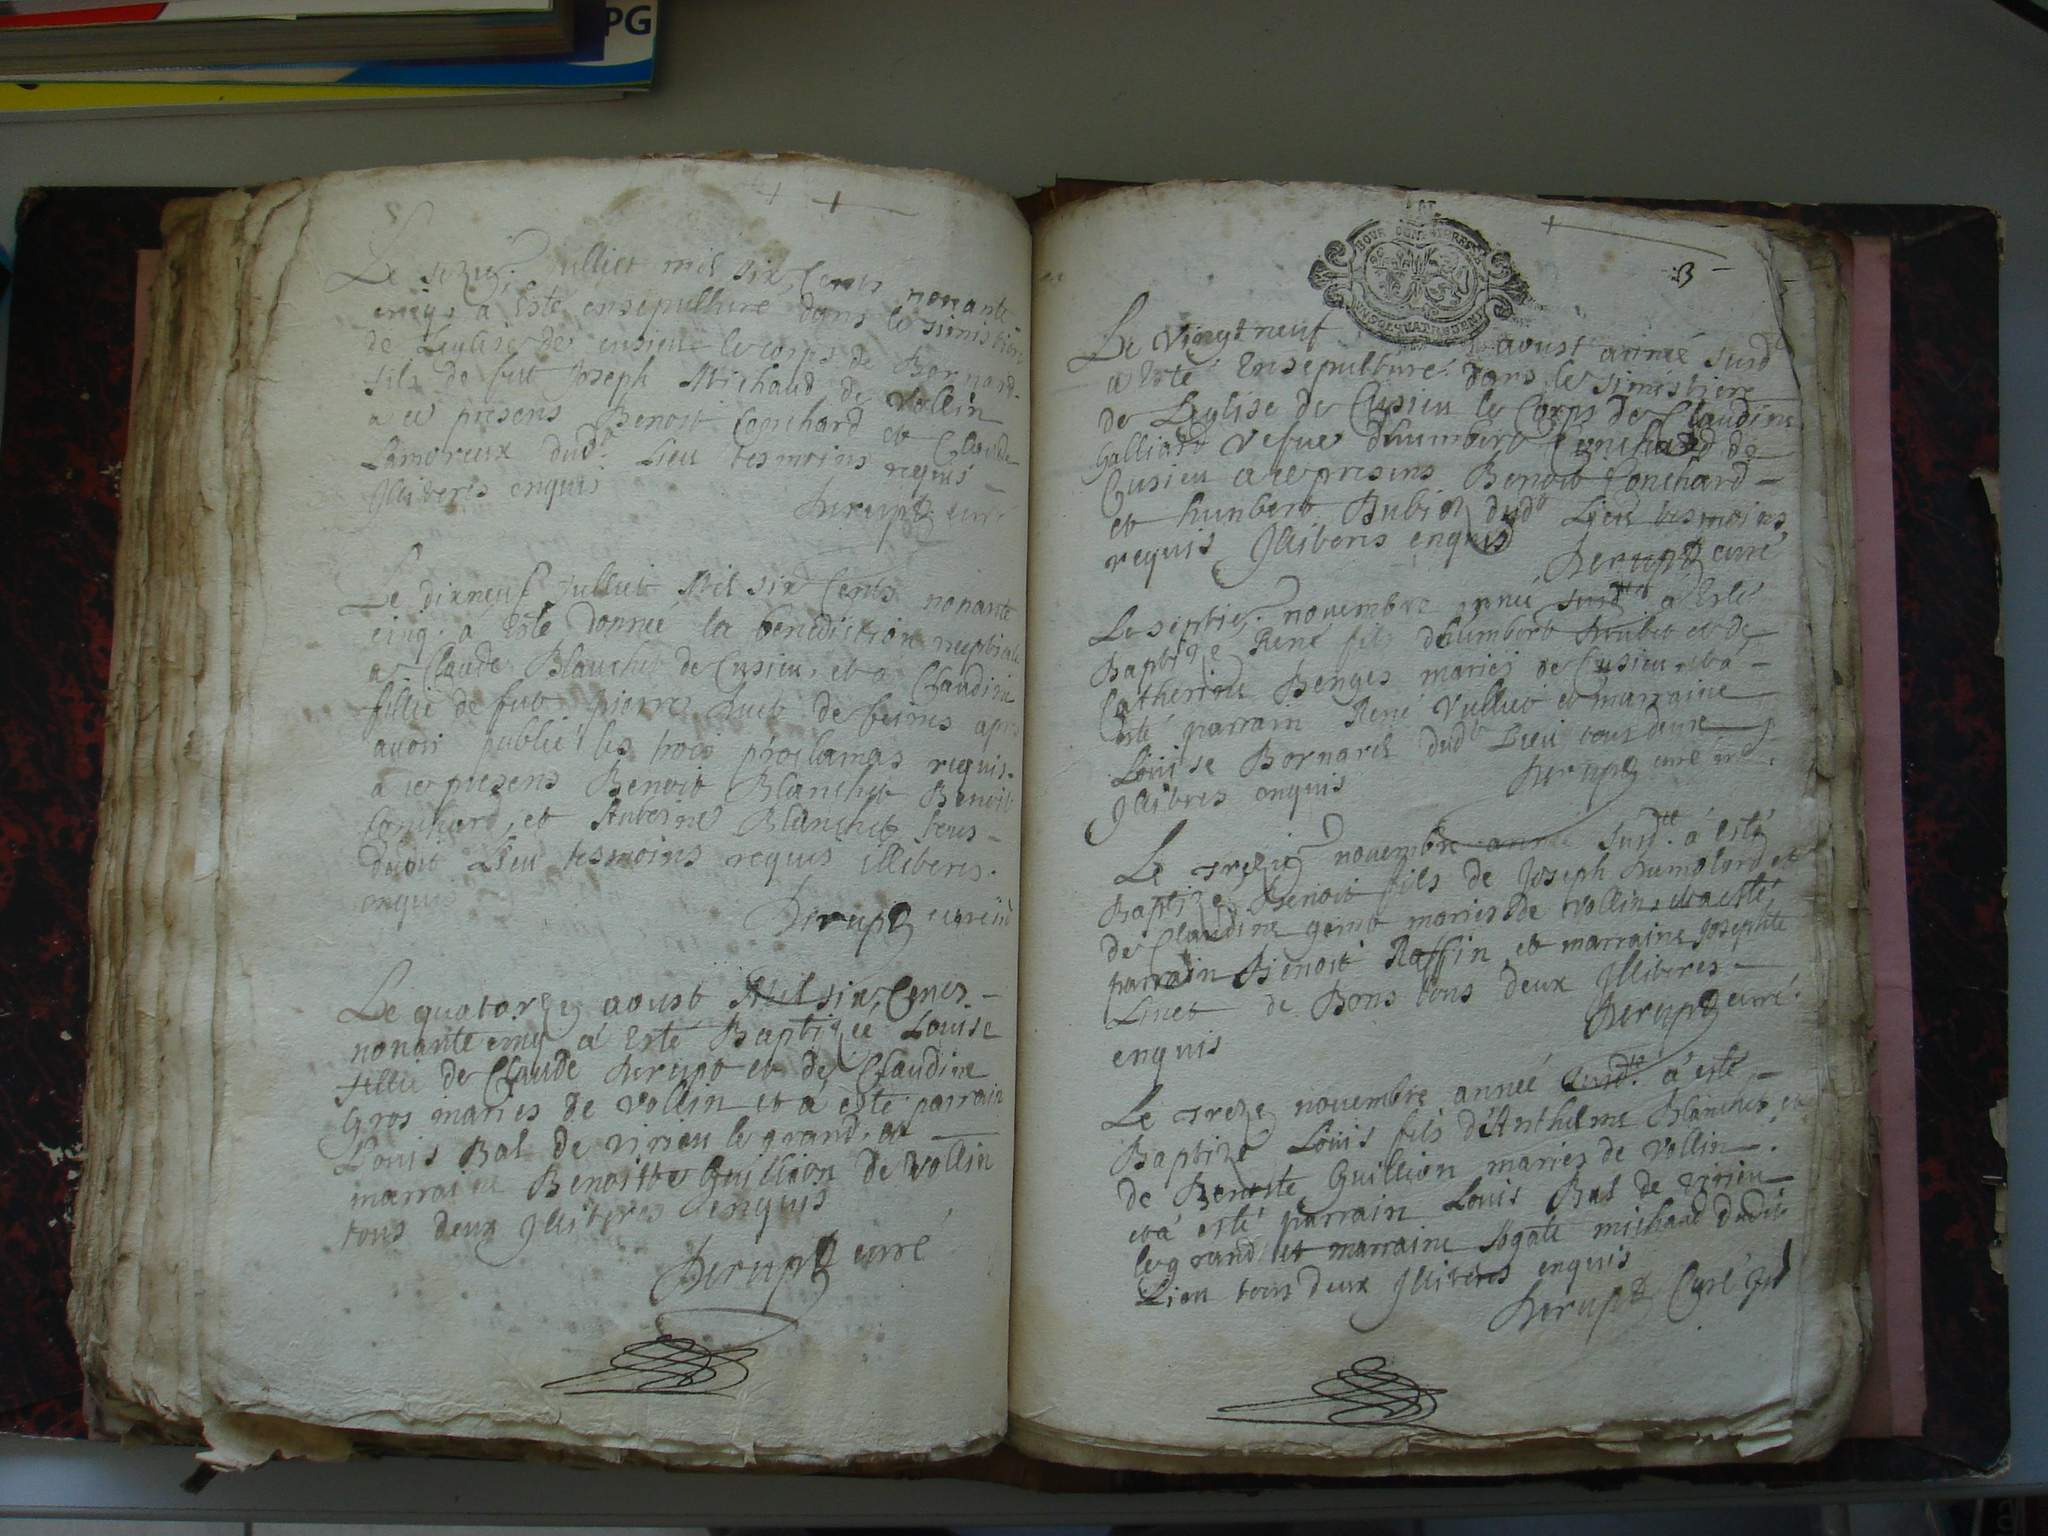 PG
Le sezie. Julliet mil six Cents nonante
cinqs a Esté ensepulturé dans le simistiere
de Leglise de cusieu le corps de Bernard
fils de fut Joseph Michaud de Vollin
a ce presens Benoit Conchard et Claude
Lamoreux dud. Lieu tesmoins requis
Illiteres enquis
Derupt curé
Le dixneuf Julliet Mil six Cents nonante
cinq. a Esté donneé la benediction nuptiale
a Claude Blanchet de Cusieu, et a Claudine
fillie de fut pierre de beins apres
avoir publié les trois proclamas requis.
a ce presens Benoit Blanchet Benoit
Conchard, et Blanchet tous
dudit Lieu tesmoins requis illiteres.
enquis
Derupt curé
Le quatorze aoust Mil six Cens
nonante cinq á Esté Baptizeé Louise
fillie de Claude Derupt et de Claudine
Gros mariés de Vollin et a esté parrain
Louis Bal de virieu le grand, et
marraine Benoitte Guillion de Vollin
tous deux Illiteres enquis
Derupt curé
3
Le Vingt neuf aoust année surd
a Esté Ensepulturé dans le simistiere
de Leglise de Cusieu le Corps de Claudine
Galliard Vefue dhumbert Conchard de
Cusieu a ce presens Benoit Conchard
et humbert Rubiod dudt Lieu tesmoins
requis Illiteres enquis
Derupt curé
Le septie. novembre année surdte a Esté
Baptizé René fils dhumbert et de
Catherine Benges mariés de Cusieu, et a
esté parrain René Vulliet et marraine
Louise Bornarel dudt Lieu tous deux
Illitres enquis
Derupt curé
Le Trezie novembre année surdte á esté
Baptizé Benoit fils de Joseph humolard et
de Claudine genit mariés de Vollin, et a esté
parrain Benoit Raffin et marraine Josephte
Linet de Bons tous deux Illiteres
enquis
Derupt curé
Le Treze novembre anneé surdte. á esté
Baptizé Loüis fils d'Anthelme Blanchet et
de Benoite Guillion mariés de Vollin
et á esté parrain Louis Bal de virieu
le grand et marraine Agate michaud dudit
Lieu tous deux Illiteres enquis
Derupt Curé